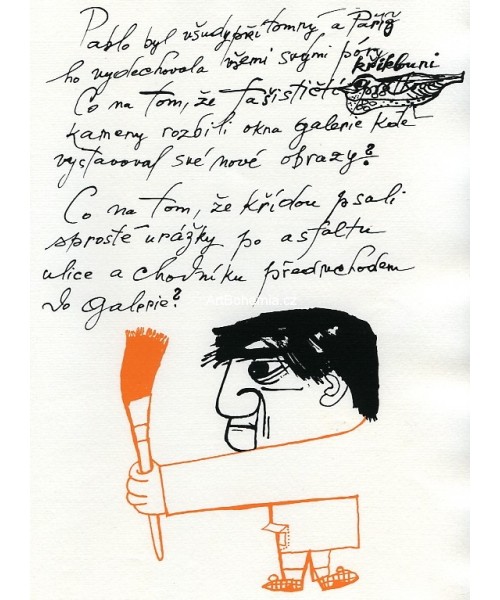 Pablo byl všudypřítomný a Paříž
ho vydechovala všemi svými póry
křiklouni
Co na tom, že fašističtí
kameny rozbili okna galerie kde
vystavoval své nové obrazy?
Co na tom, že křídou psali
sprosté urážky po asfaltu
ulice a chodníku před vchodem
do galerie?
ArtBohemia.cz